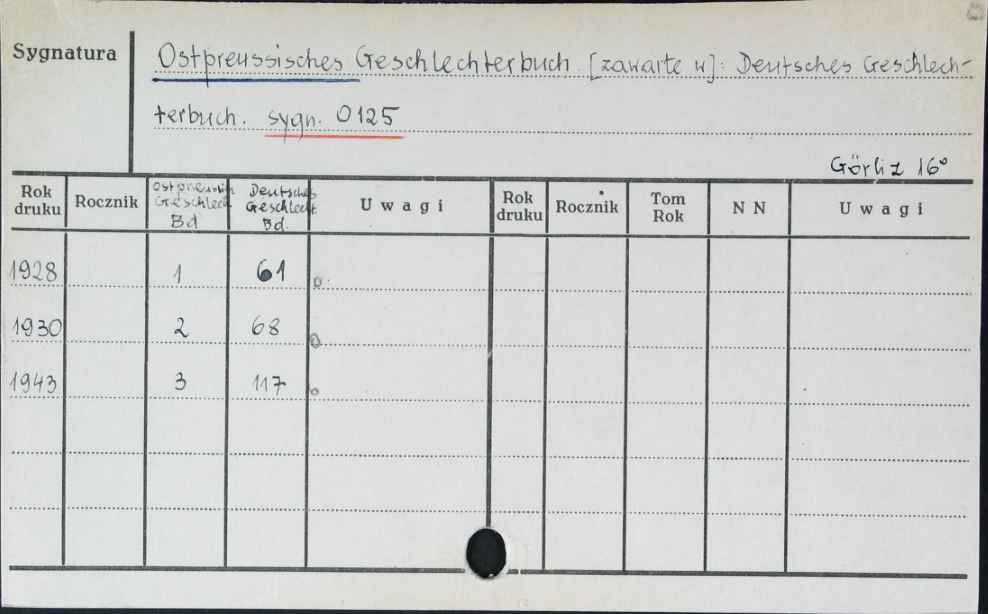 Sygnatura
Ostpreussisches Geschlechterbuch [zawarte w]: Deutsches Geschlech-
terbuch. sygn. 0125
Görliz 16°
Rok druku Rocznik Ostpreussisch Geschlech Bd Deutsches Geschlecht Bd. Uwagi Rok druku Rocznik Tom Rok NN Uwagi
1928 1 61
1930 2 68
1943 3 117